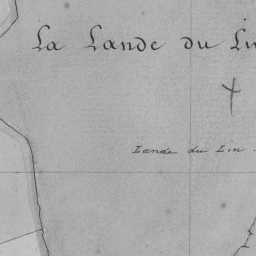 La Lande du Lin
Lande du Lin.